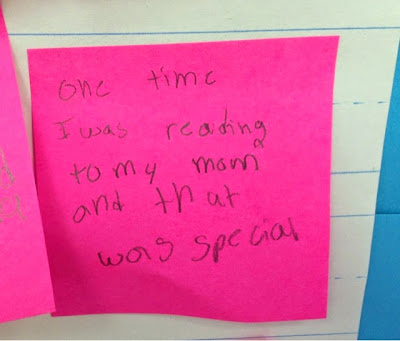 one time
I was reading
to my mom
and that
was special